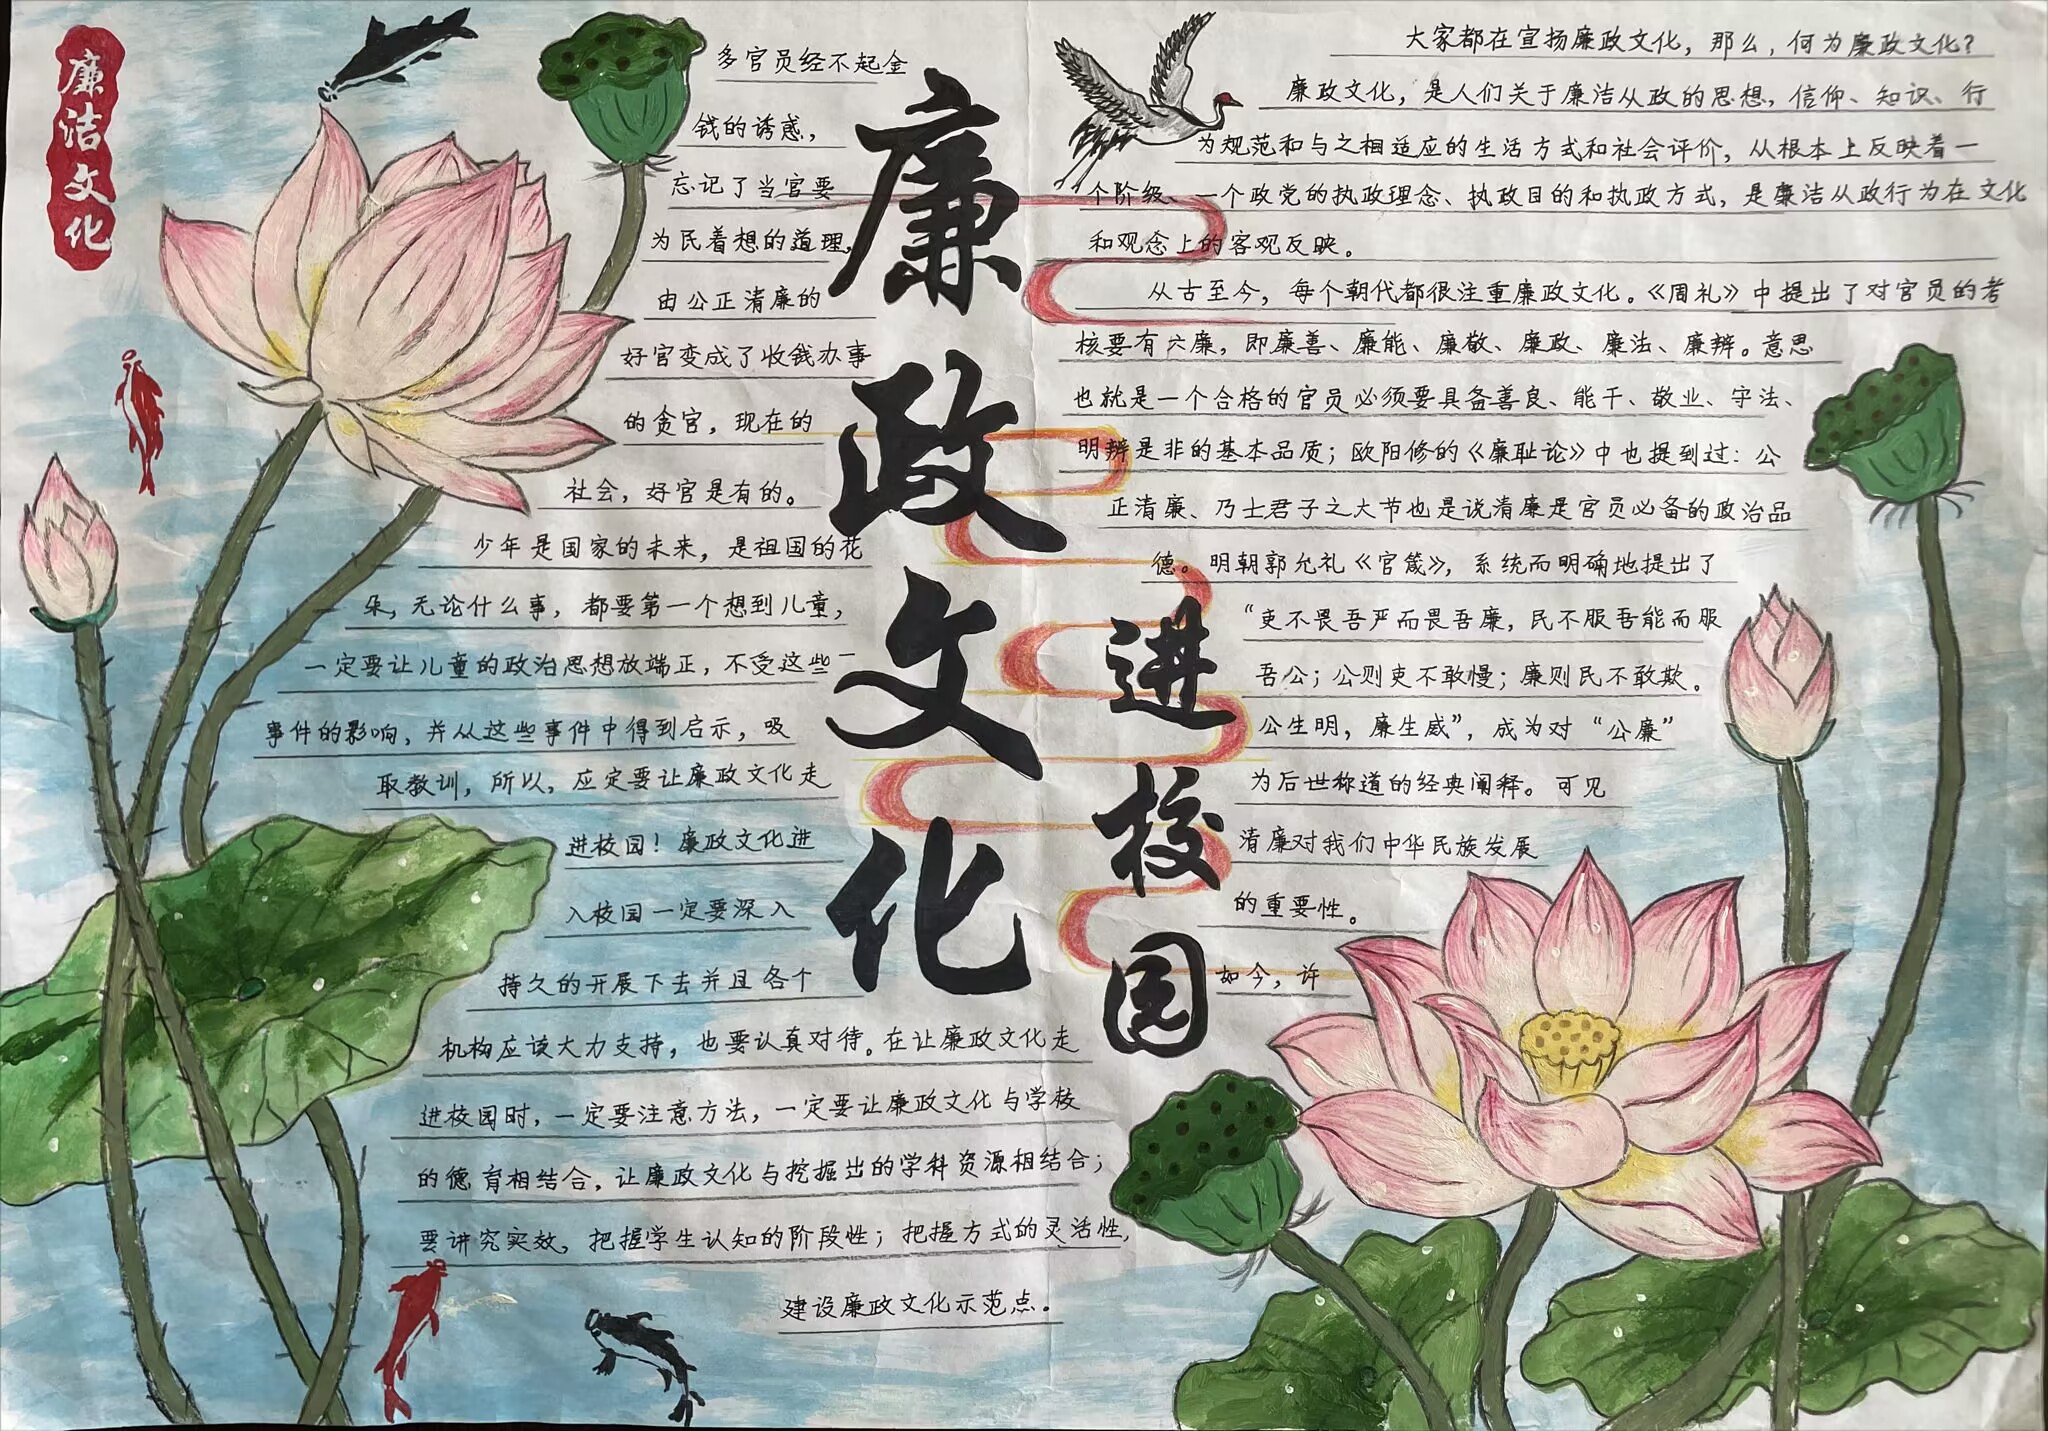 廉洁文化
廉政文化
进校园
大家都在宣扬廉政文化，那么，何为廉政文化？
廉政文化，是人们关于廉洁从政的思想，信仰、知识、行
为规范和与之相适应的生活方式和社会评价，从根本上反映着一
个阶级、一个政党的执政理念、执政目的和执政方式，是廉洁从政行为在文化
和观念上的客观反映。
从古至今，每个朝代都很注重廉政文化。《周礼》中提出了对官员的考
核要有六廉，即廉善、廉能、廉敬、廉政、廉法、廉辨。意思
也就是一个合格的官员必须要具备善良、能干、敬业、守法、
明辨是非的基本品质；欧阳修的《廉耻论》中也提到过：公
正清廉、乃士君子之大节也是说清廉是官员必备的政治品
德。明朝郭允礼《官箴》，系统而明确地提出了
“吏不畏吾严而畏吾廉，民不服吾能而服
吾公；公则吏不敢慢；廉则民不敢欺。
公生明，廉生威”，成为对“公廉”
为后世称道的经典阐释。可见
清廉对我们中华民族发展
的重要性。
如今，许
多官员经不起金
钱的诱惑，
忘记了当官要
为民着想的道理，
由公正清廉的
好官变成了收钱办事
的贪官，现在的
社会，好官是有的。
少年是国家的未来，是祖国的花
朵，无论什么事，都要第一个想到儿童，
一定要让儿童的政治思想放端正，不受这些
事件的影响，并从这些事件中得到启示，吸
取教训，所以，应定要让廉政文化走
进校园！廉政文化进
入校园一定要深入
持久的开展下去并且各个
机构应该大力支持，也要认真对待。在让廉政文化走
进校园时，一定要注意方法，一定要让廉政文化与学校
的德育相结合，让廉政文化与挖掘出的学科资源相结合；
要讲究实效，把握学生认知的阶段性；把握方式的灵活性，
建设廉政文化示范点。